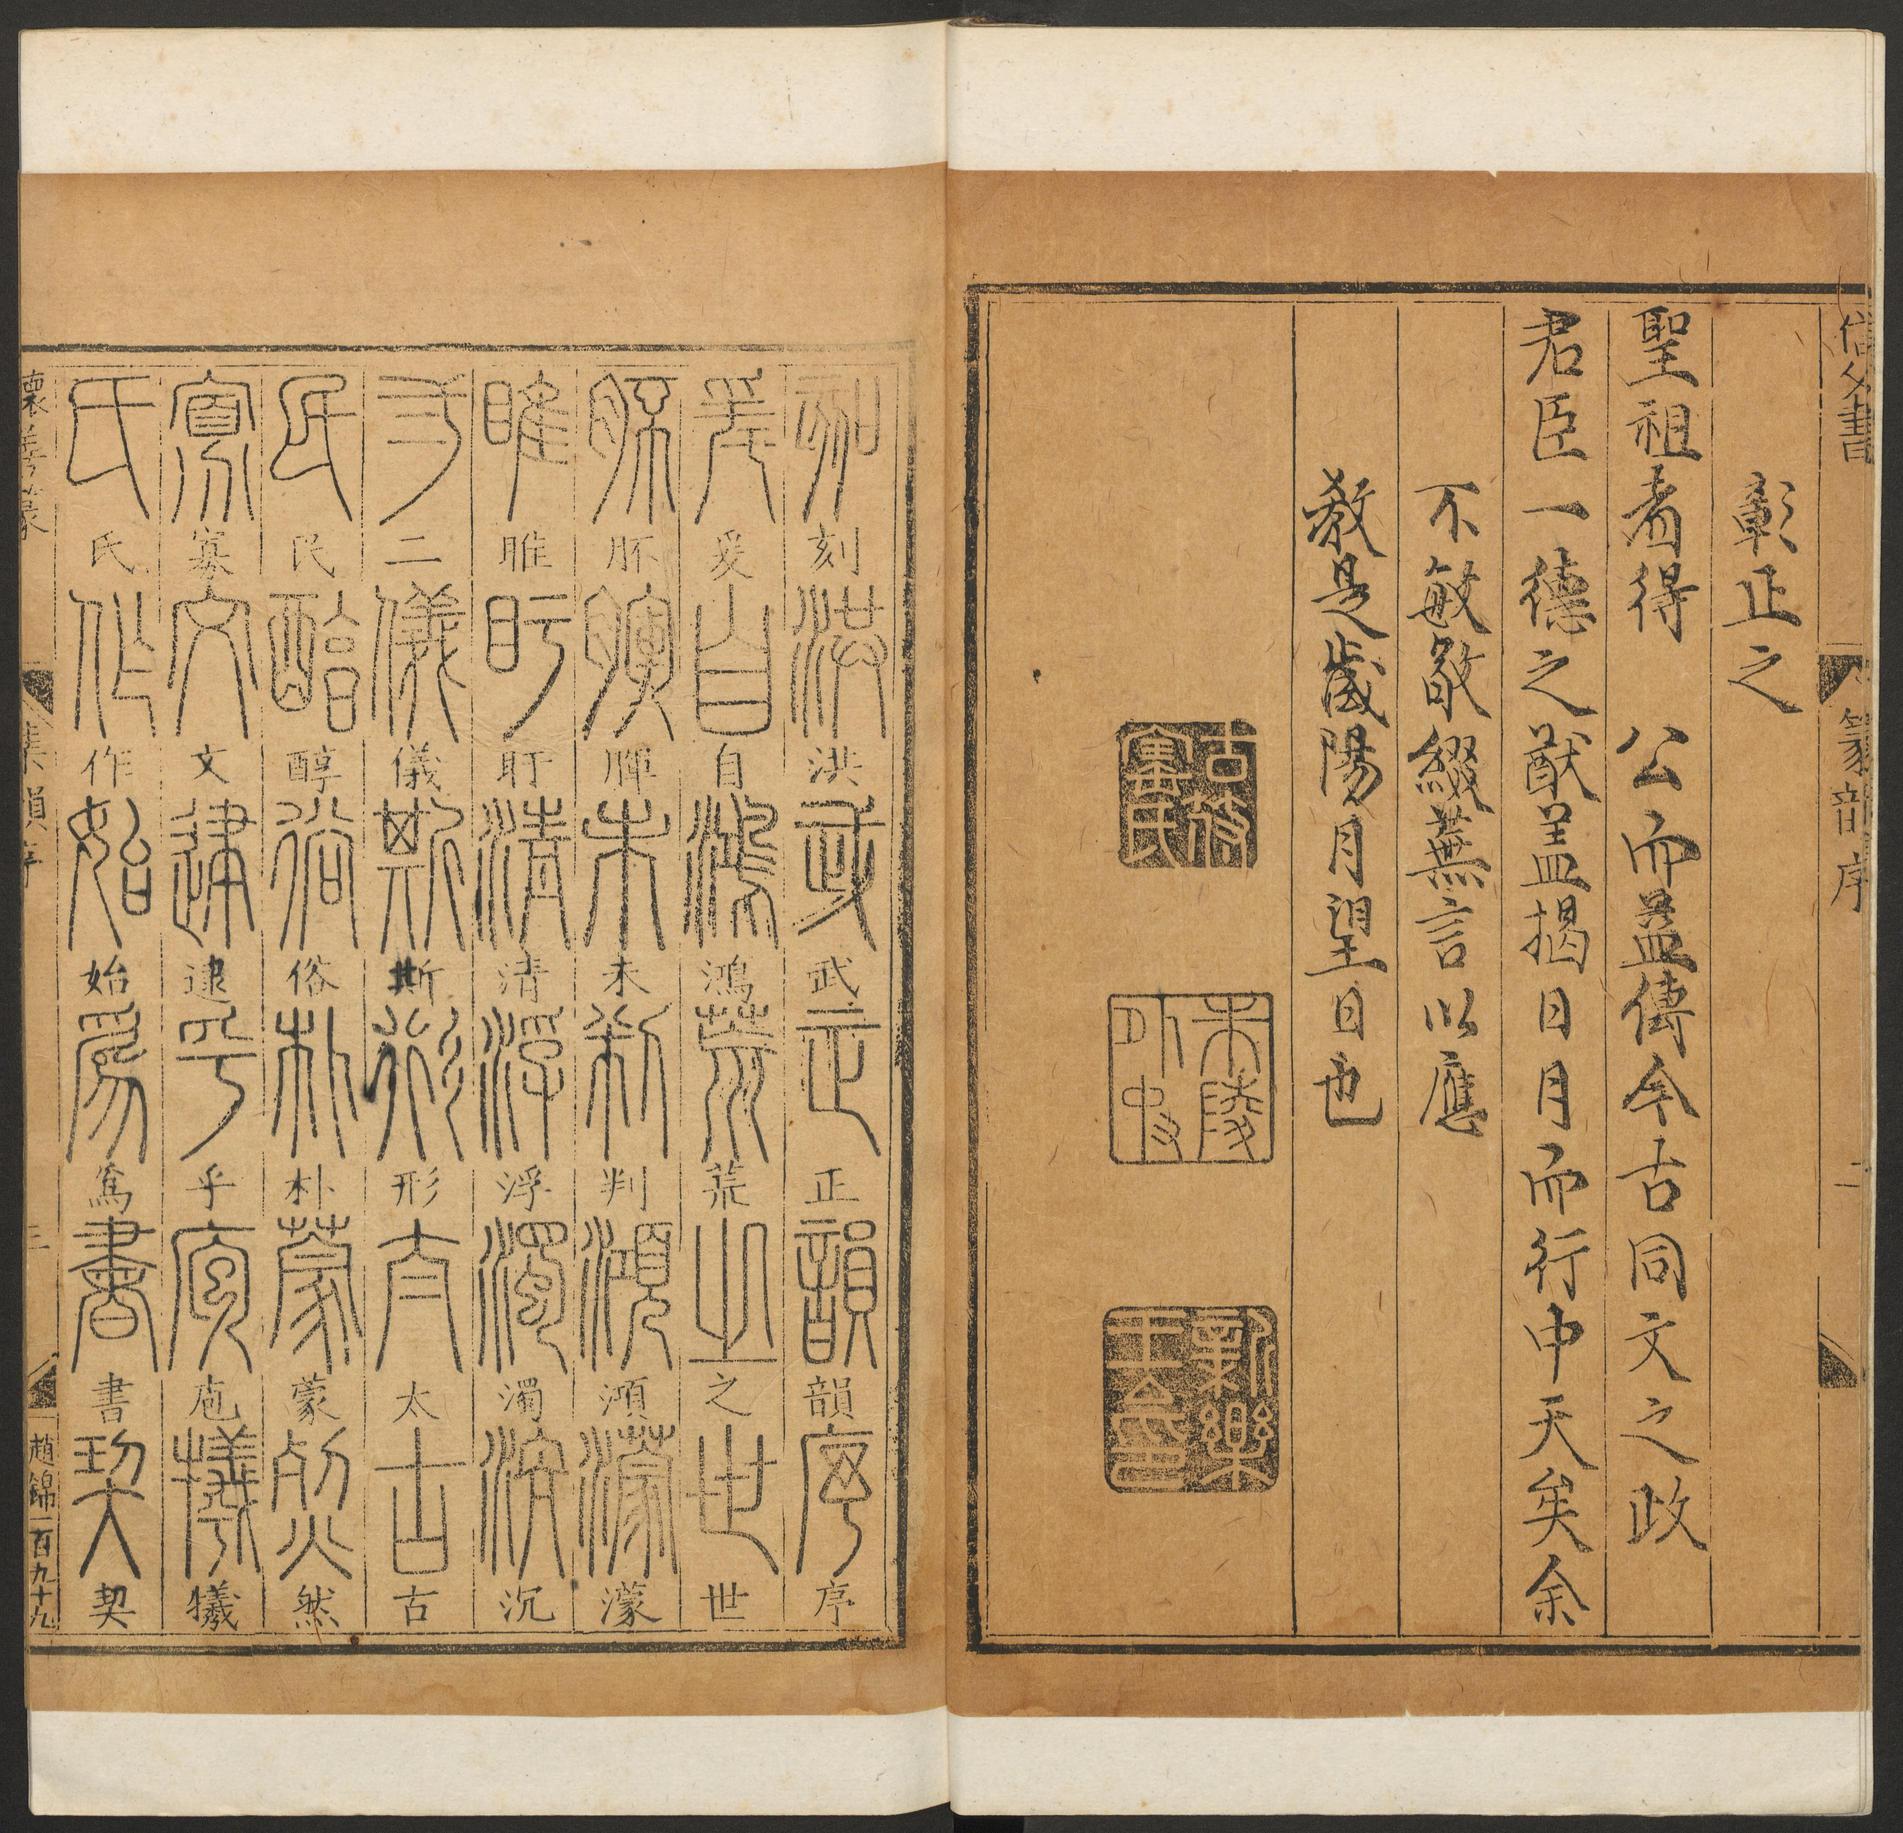 篆韻序
二
彰正之
聖祖者得　公而益傳今古同文之政
君臣一德之猷盖揭日月而行中天矣余
不敏敬綴蕪言以應
教是歲陽月望日也
刻洪武正韻序
爰自鴻荒之世
胚腪未判澒濛
睢盱清浮濁沉
二儀斯形太古
民醇俗朴蒙然
寡文逮乎庖犧
氏作始爲書契
集韻序
三
趙錦一百九十九